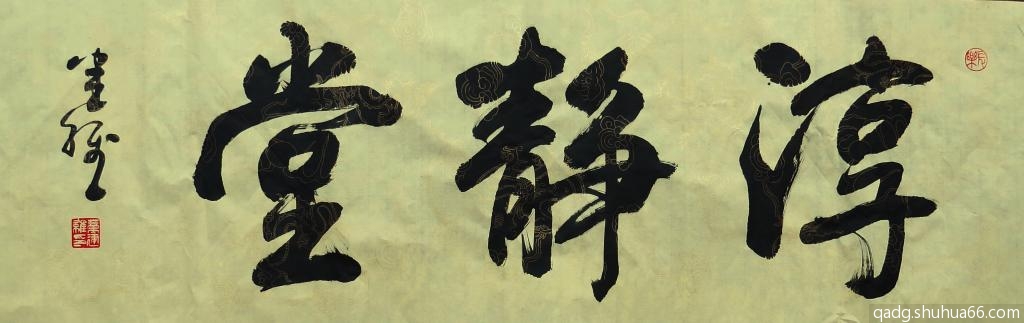 淳静堂
qadg.shuhua66.com